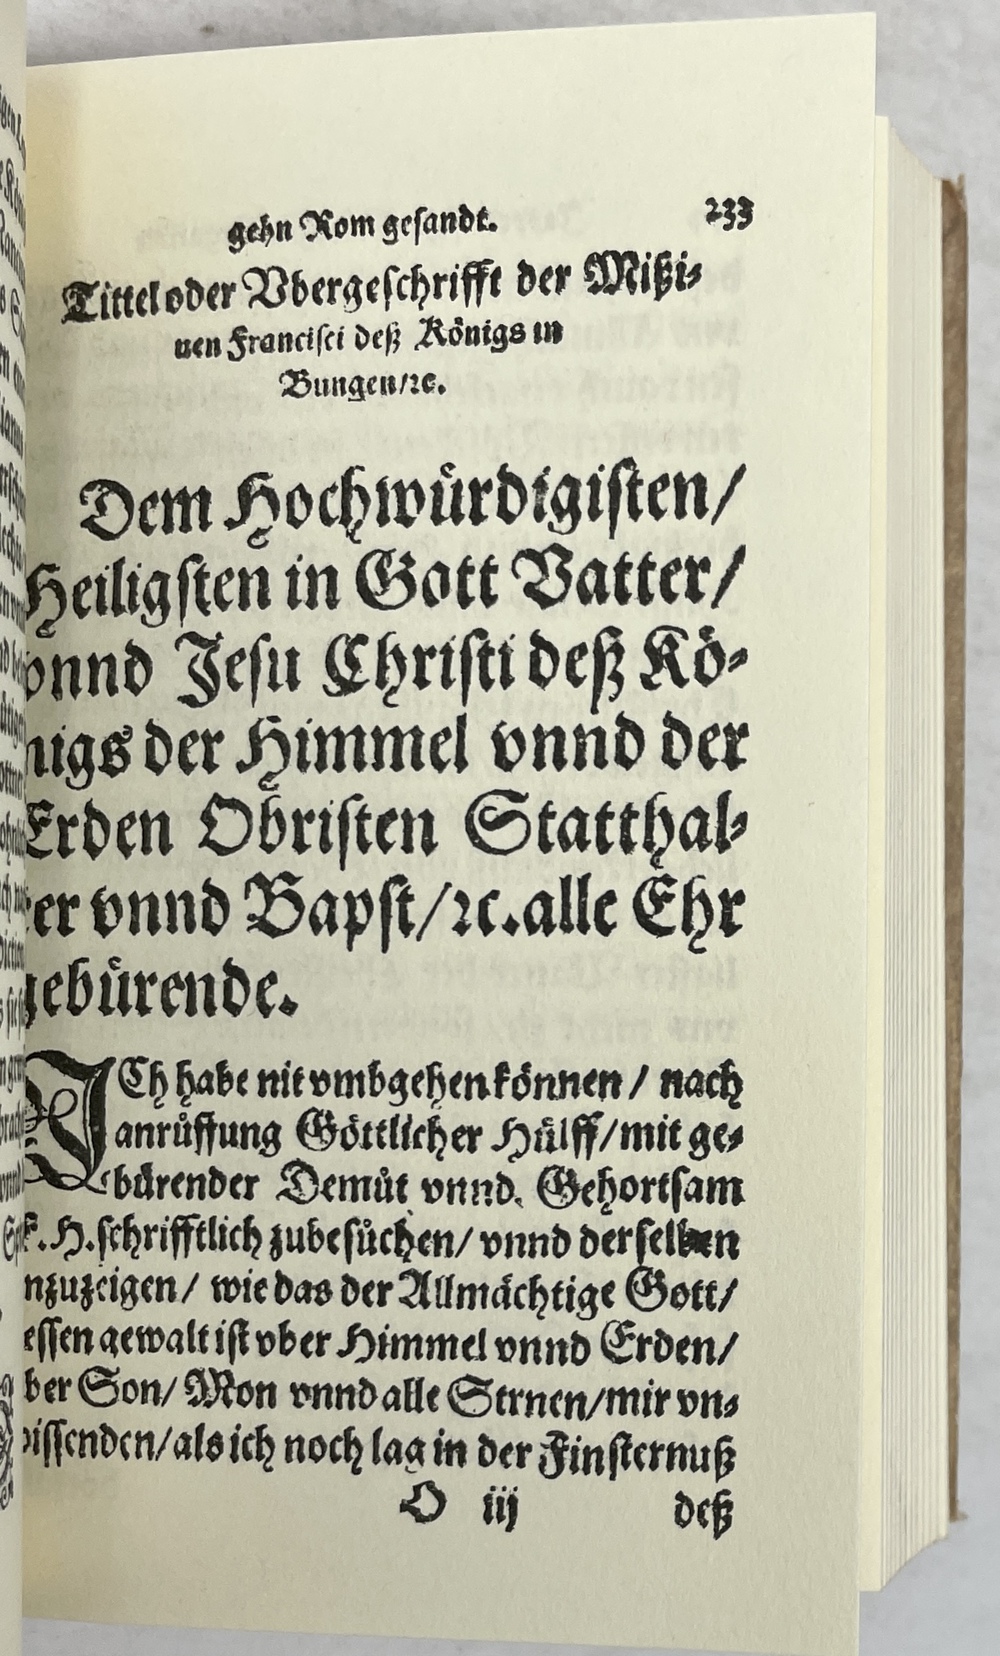 gehn Rom gesandt. 233
Tittel oder Vbergeschrifft der Mißi-
uen Francisci deß Königs in
Bungen/ꝛc.
Dem Hochwürdigisten/
Heiligsten in Gott Vatter/
vnnd Jesu Christi deß Kö-
nigs der Himmel vnnd der
Erden Obristen Statthal-
ter vnnd Bapst/ꝛc. alle Ehr
gebürende.
ICh habe nit vmbgehen können/ nach
anrůffung Göttlicher Hülff/mit ge-
bürender Demůt vnnd. Gehortsam
H. schrifftlich zubesůchen/ vnnd derselben
nzuzeigen/ wie das der Allmächtige Gott/
essen gewalt ist vber Himmel vnnd Erden/
ber Son/ Mon vnnd alle Strnen/mir vn-
issenden/als ich noch lag in der Finsternuß
O iij deß